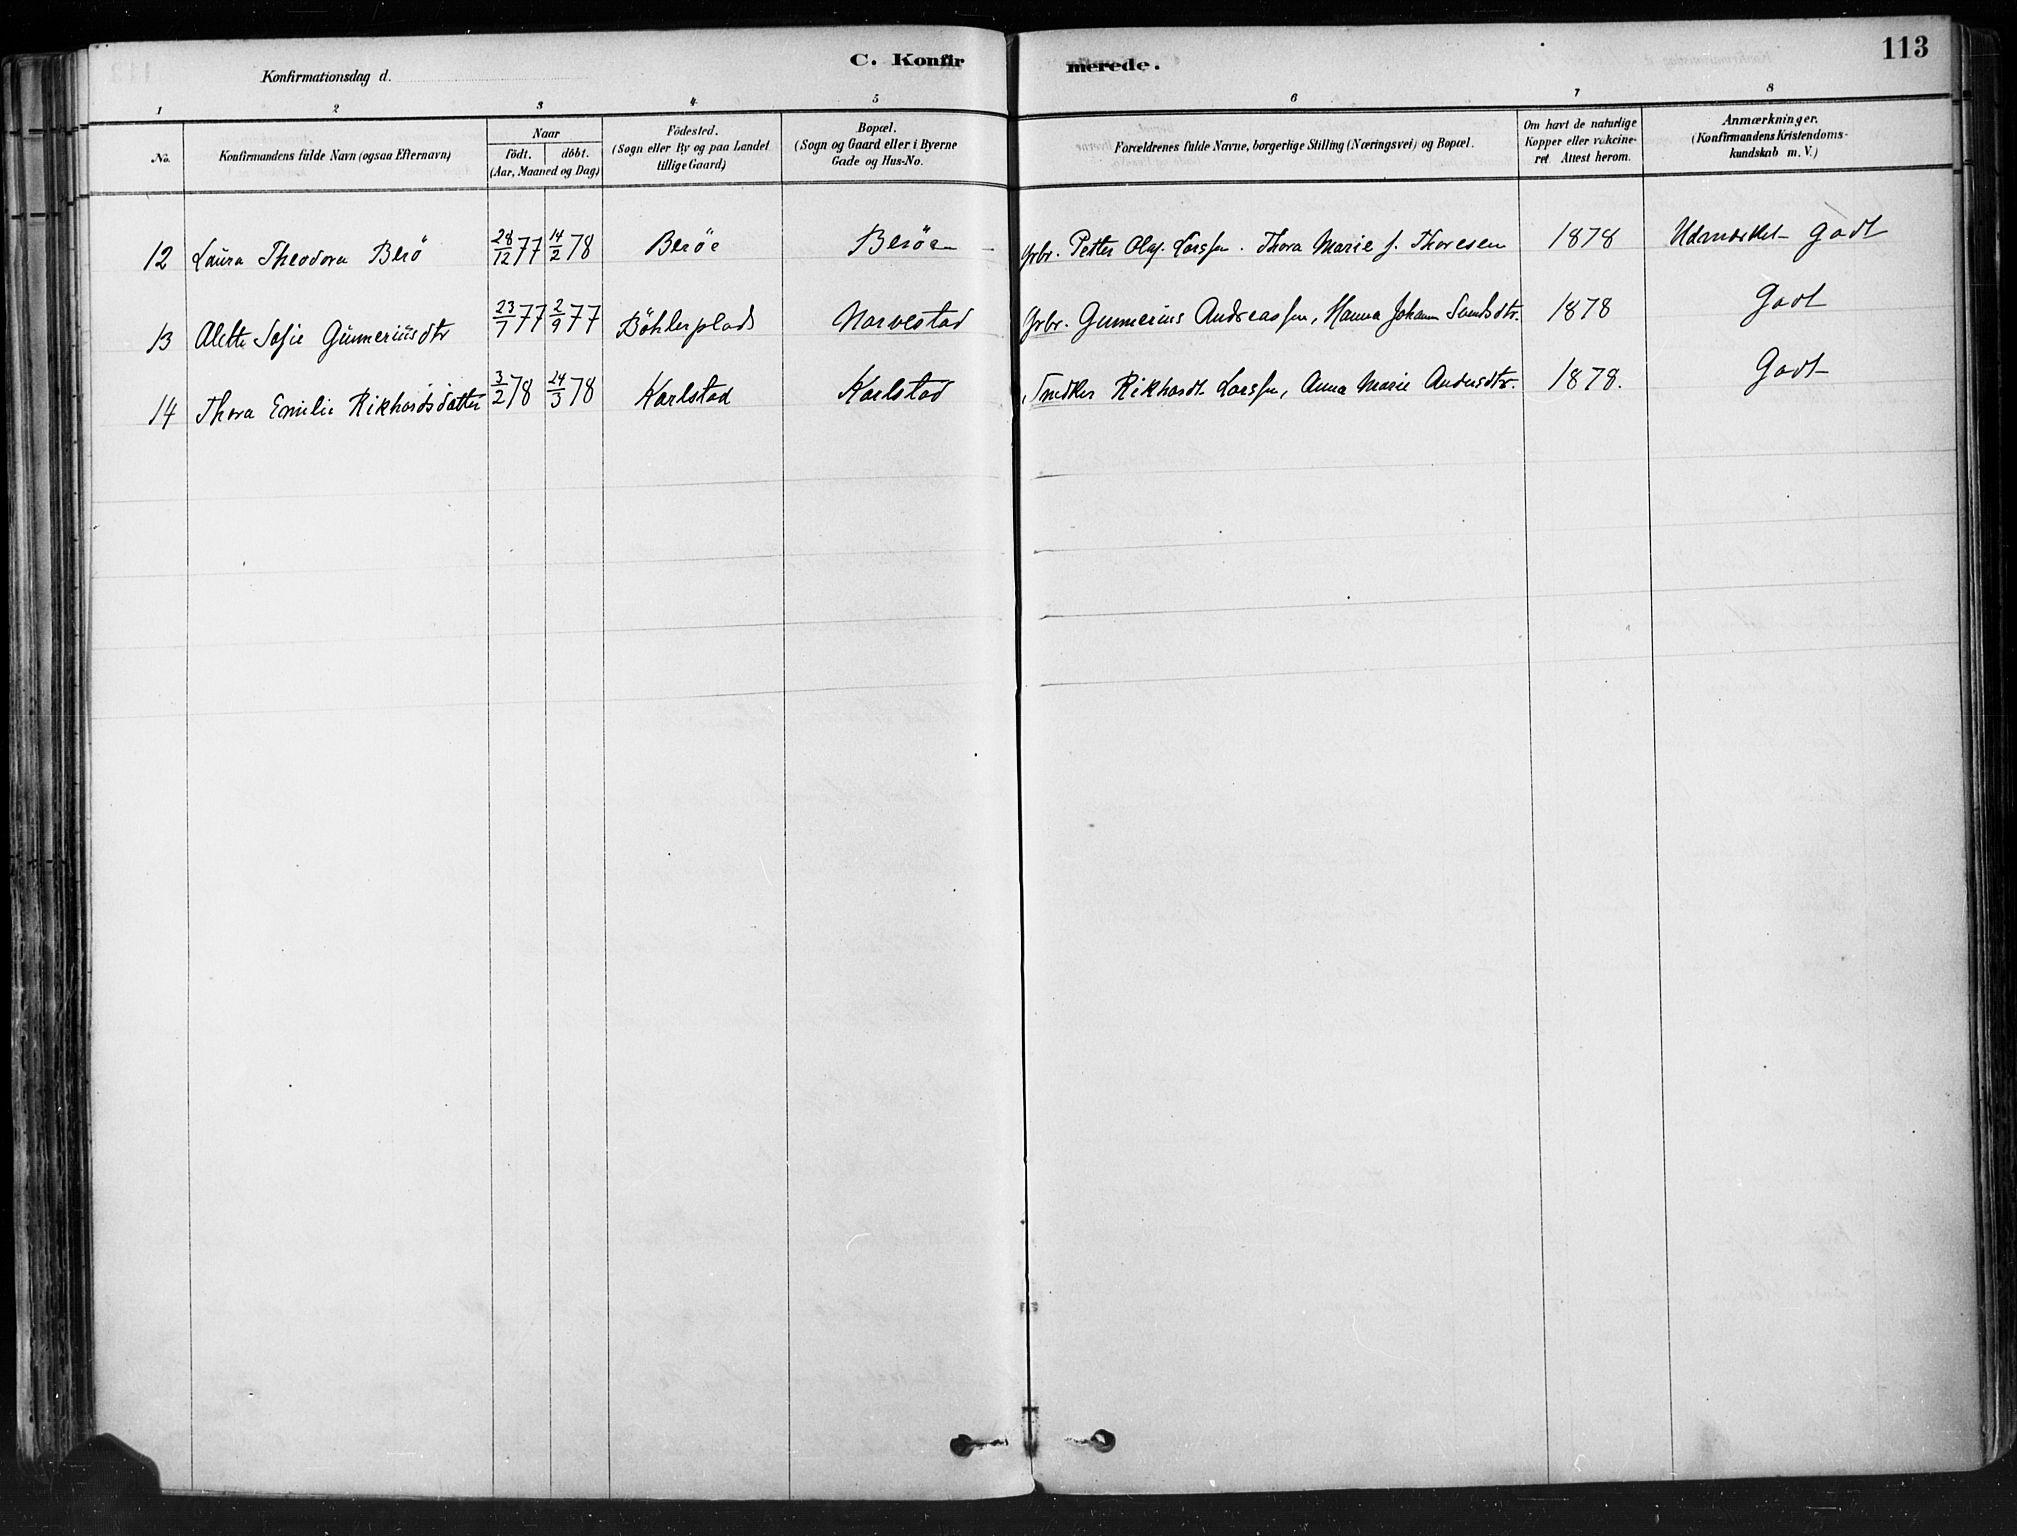 C. Konfirmerede.
113
Konfirmationsdag d.
1 2 3 4 5 6 7 8
No.
Konfirmandens fulde Navn (ogsaa Efternavn)
Naar
födt. döbt.
(Aar, Maaned og Dag)
Födested.
(Sogn eller By og paa Landet
tillige Gaard)
Bopæl.
(Sogn og Gaard eller i Byerne
Gade og Hus-No.
Forældrenes fulde Navne, borgerlige Stilling (Næringsvei) og Bopæl.
Om havt de naturlige
Kopper eller vakcine-
ret. Attest herom.
Anmærkninger.
(Konfirmandens Kristendoms-
kundskab m. V.)
12 Laura Theodora Berö 28/12 77 14/2 78 Beröe Beröen Grbr. Petter Olaf Larssen. Thora Marie f. Thoresen 1878 Udmærket godt
13 Alette Sofie Gunneriusdtr 23/7 77 2/9 77 Böhlerplads Narvestad Grbr. Gunnerius Andreassen, Hanna Johanne 1878 Godt
14 Thora Emilie Rikhardsdatter 3/2 78 24/3 78 Karlstad Karlstad Snedker Rikhardt Larssen, Anna Marie Andersdtr. 1878. Godt